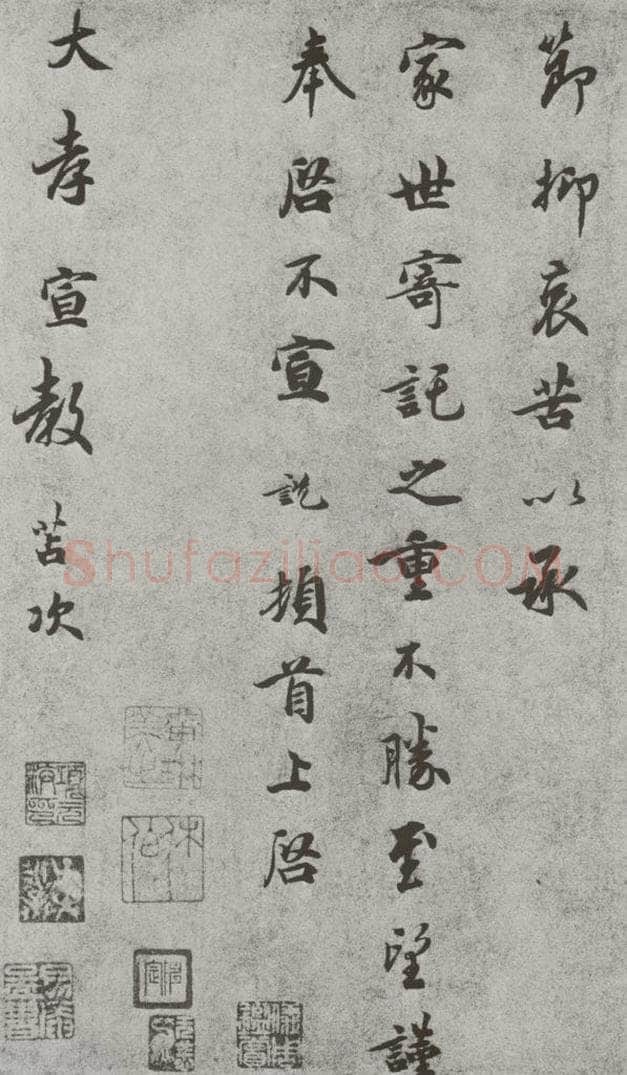 節抑哀苦以承
家世寄託之重不勝至望謹
奉啓不宣 説頓首上啓
大孝宣教 苫次
Shufaziliao.COM